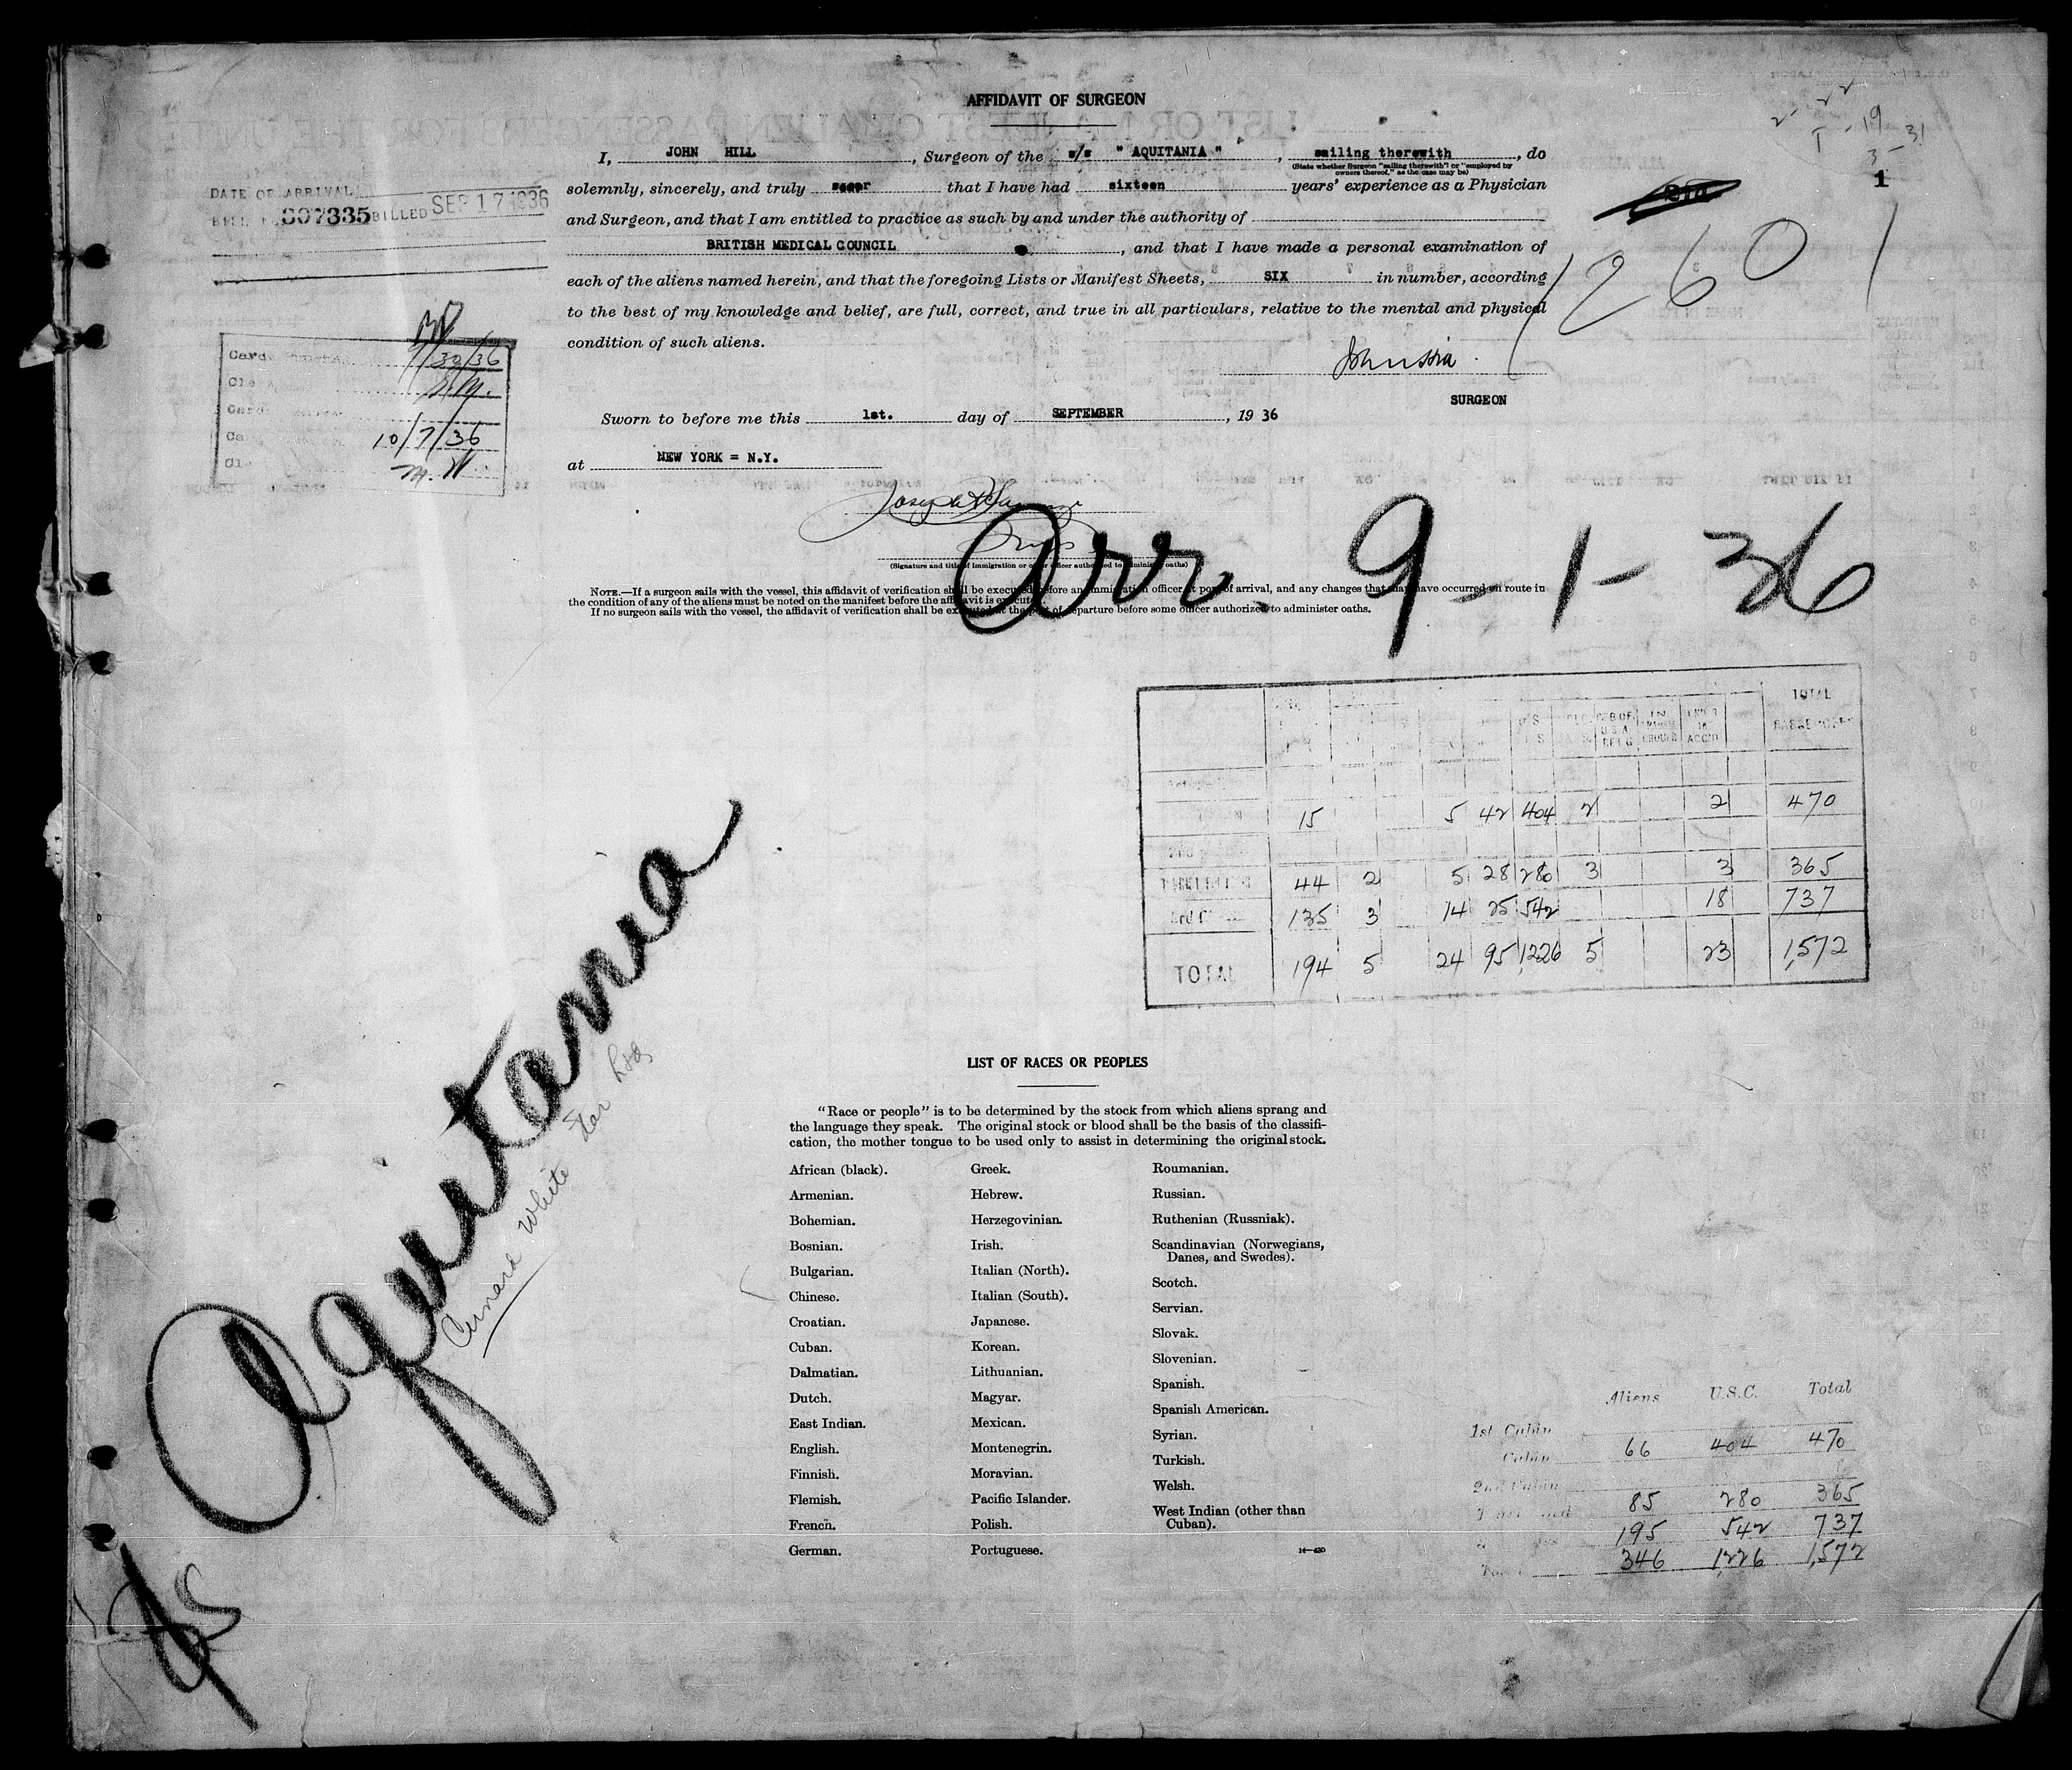 AFFIDAVIT OF SURGEON
I, JOHN HILL, Surgeon of the s/s "AQUITANIA", sailing therewith, do
(State whether Surgeon "sailing therewith" or "employed by
owners thereof," as the case may be)
solemnly, sincerely, and truly swear that I have had sixteen years' experience as a Physician
and Surgeon, and that I am entitled to practice as such by and under the authority of
BRITISH MEDICAL COUNCIL, and that I have made a personal examination of
each of the aliens named herein, and that the foregoing Lists or Manifest Sheets, SIX in number, according
to the best of my knowledge and belief, are full, correct, and true in all particulars, relative to the mental and physical
condition of such aliens.
SURGEON
Sworn to before me this 1st. day of SEPTEMBER, 19 36
at NEW YORK = N.Y.
(Signature and title of immigration or other officer authorized to administer oaths)
NOTE.—If a surgeon sails with the vessel, this affidavit of verification shall be executed before an immigration officer at port of arrival, and any changes that may have occurred en route in
the condition of any of the aliens must be noted on the manifest before the affidavit is executed.
If no surgeon sails with the vessel, the affidavit of verification shall be executed at the port of departure before some officer authorized to administer oaths.
DATE OF ARRIVAL
BILL 807335 BILLED SEP 17 1936
9/30/36
10/7/36
M. W.
2 - 22
T - 19
3 - 31
1
12601
Arr. 9-1-36
TOTAL
PASSENGERS
15 5 42 404 2 2 470
44 2 5 28 280 3 3 365
3rd 135 3 14 25 542 18 737
TOTAL 194 5 24 95 1226 5 23 1,572
Aquitania
Cunard White Star Ltd
LIST OF RACES OR PEOPLES
"Race or people" is to be determined by the stock from which aliens sprang and
the language they speak. The original stock or blood shall be the basis of the classifi-
cation, the mother tongue to be used only to assist in determining the original stock.
African (black).
Armenian.
Bohemian.
Bosnian.
Bulgarian.
Chinese.
Croatian.
Cuban.
Dalmatian.
Dutch.
East Indian.
English.
Finnish.
Flemish.
French.
German.
Greek.
Hebrew.
Herzegovinian.
Irish.
Italian (North).
Italian (South).
Japanese.
Korean.
Lithuanian.
Magyar.
Mexican.
Montenegrin.
Moravian.
Pacific Islander.
Polish.
Portuguese.
Roumanian.
Russian.
Ruthenian (Russniak).
Scandinavian (Norwegians,
Danes, and Swedes).
Scotch.
Servian.
Slovak.
Slovenian.
Spanish.
Spanish American.
Syrian.
Turkish.
Welsh.
West Indian (other than
Cuban).
Aliens U.S.C. Total
1st Cabin
Cabin 66 404 470
2nd Cabin
85 280 365
195 542 737
346 1,226 1,572